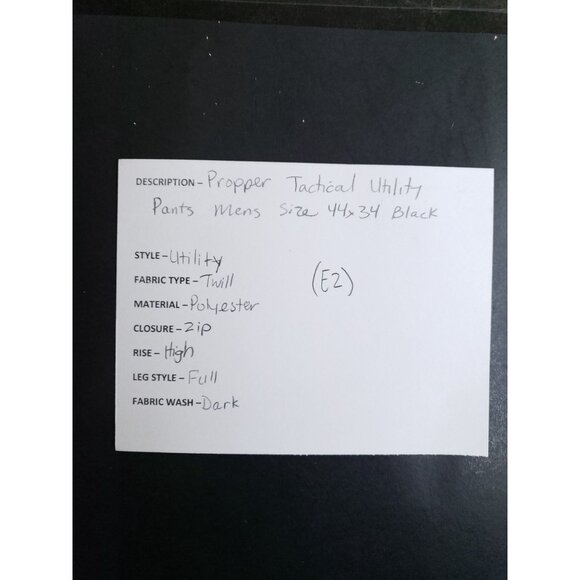 DESCRIPTION - Propper Tactical Utility
Pants Mens Size 44x34 Black
STYLE - Utility
FABRIC TYPE - Twill
(E2)
MATERIAL - Polyester
CLOSURE - Zip
RISE - High
LEG STYLE - Full
FABRIC WASH - Dark